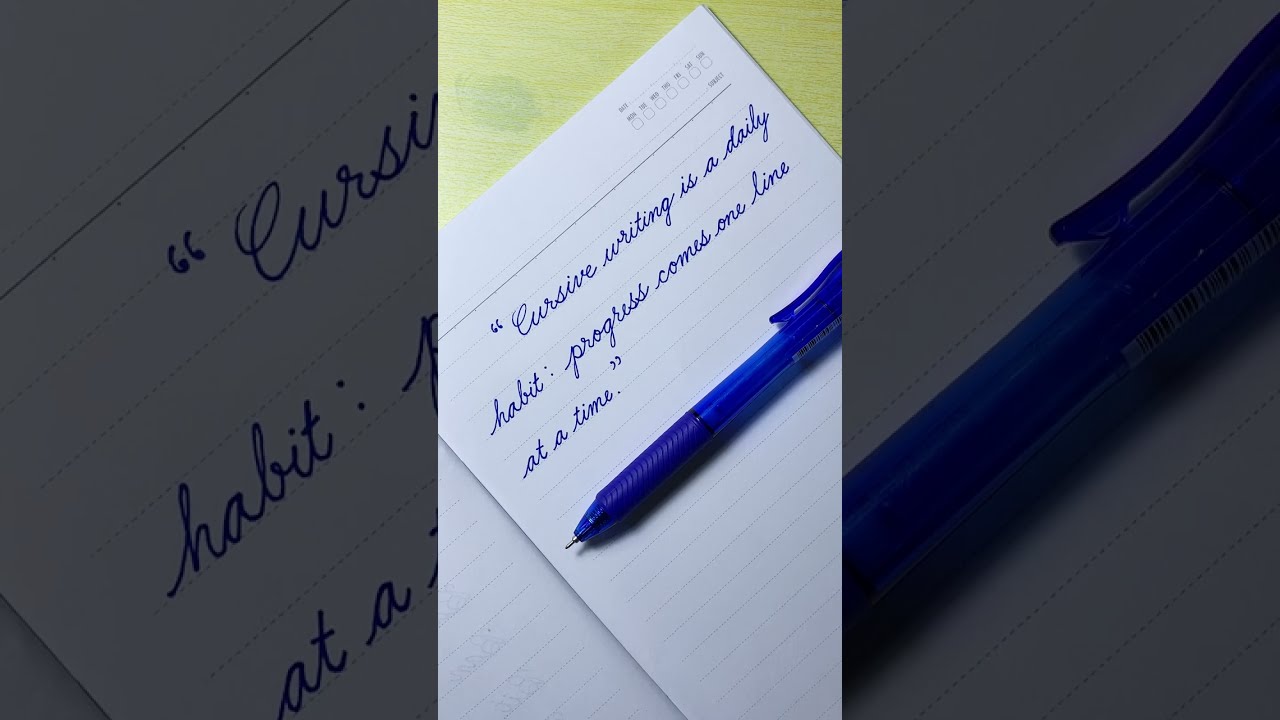 DATE
MON TUE WED THU FRI SAT SUN
SUBJECT
“ Cursive writing is a daily
habit : progress comes one line
at a time. ”